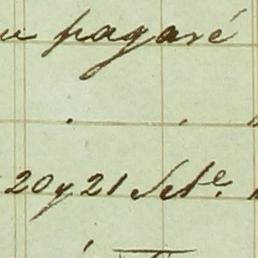 u pagaré
20 y 21 Set.e